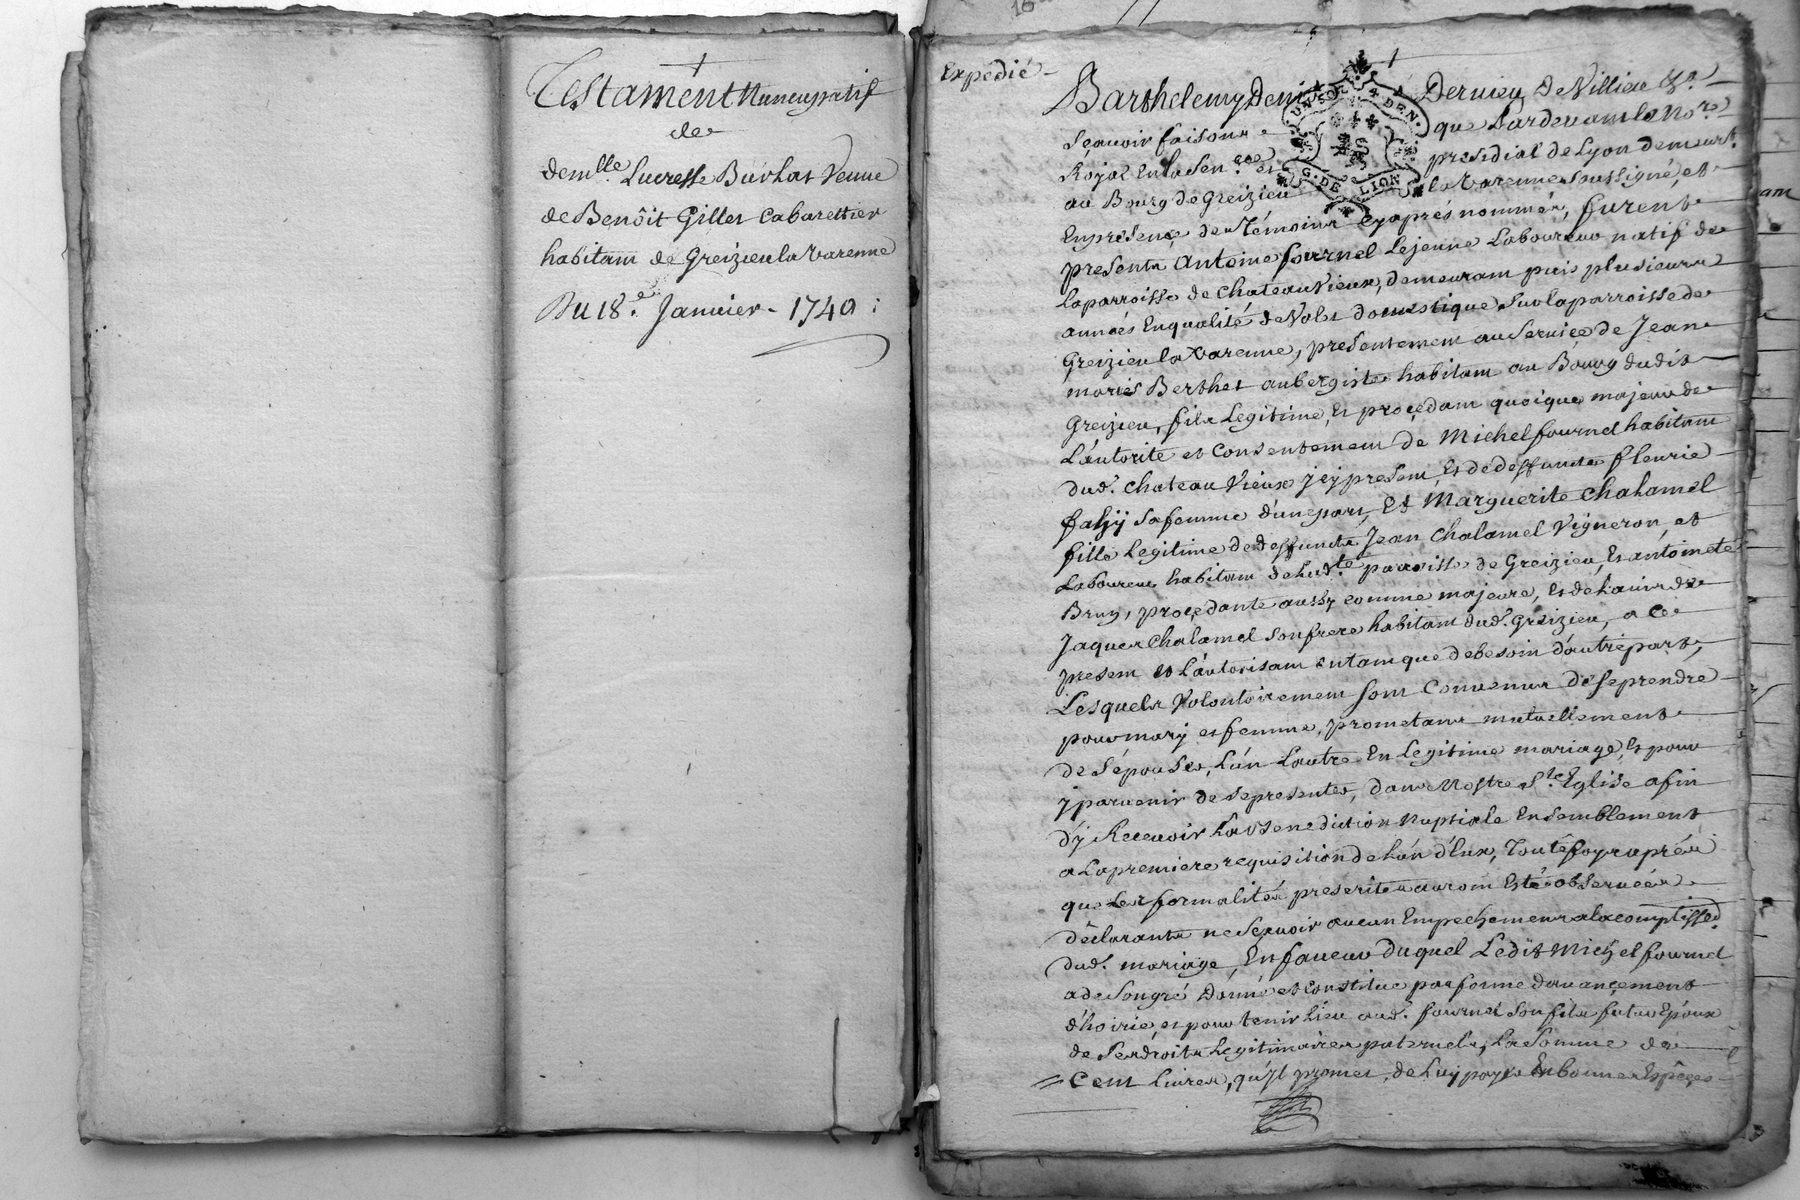 Testament Nuncupatif
de
demlle Lucresse Burlat Veuve
de Benôit Gilles Cabarettier
habitant de Greizieu la varenne
Du 18e. Janvier - 1740 :
Expedié -
Barthelemy Deni Dervieu De Villieu &a
Sçavoir faisons que Pardevant le Nore
Royal En la Senée. et presidial de Lyon demeurt.
au Bourg de Greizieu la Varenne soussigné, et
En presence des Témoins cy aprés nommés, furent
presents Antoine fournel Lejeune Laboureur natif de
la parroisse de Chateauvieux, demeurant puis plusieurs
annoés En qualité de Valet domestique Sur la parroisse de
Greizieu la Varenne, presentement au Service de Jean
mariés Berthet aubergiste habitant au Bourg dudit
Greizieu, fils Legitime, Et procedant quoique majeur de
L'autorité et Consentement de Michel fournel habitant
dud. Chateau Vieux jcy present, Et de deffuncte fleurie
fahÿ sa femme d'une part, Et Marguerite Chalamel
fille Legitime de deffuncts Jean Chalamel Vigneron, et
Laboureur habitant de Ladte. paroisse de Greizieu, Et antoinete
Brun, procedante aussy comme majeure, Et de L'avis de
Jaques Chalamel son frere habitant dud. Greizieu, a Ce
present et L'autorisant Entant que de besoin d'autre part,
Lesquels Volontairement sont Convenus De se prendre
pour mary et femme, prometans mutuellement
de S'épouser, L'un L'autre En Legitime mariage, Et pour
y parvenir de se presenter, dans Nostre Ste. Eglise afin
d'y Recevoir La Benediction Nuptiale Ensemblement
a La premiere requisition de L'un d'Eux, Toutefoys aprés
que Les formalités prescrites auront Esté observées
déclarants ne Sçavoir aucun Empechement a l'acomplissed.
dud. mariage, En faveur Duquel Ledit Michel fournel
a de Son gré Donné et Constitue par forme d'avancement
d'hoirie, et pour tenir Lieu aud. fournel Son fils futur Epoux
de Ses droits Legitimaires paternels, La Somme de
Cent Livres, qu'jl promet, de Luy payer En bonnes Espêces